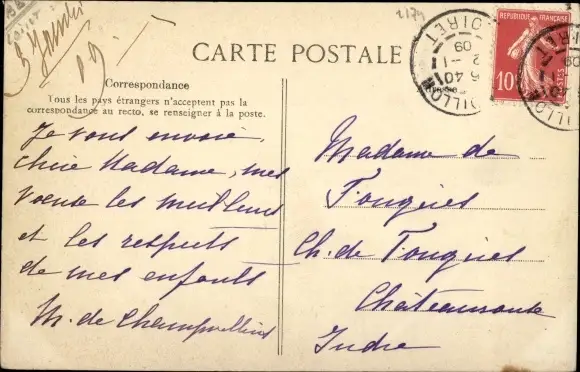 3 Janvier
09
2174
CARTE POSTALE
Correspondance
Tous les pays étrangers n'acceptent pas la
correspondance au recto, se renseigner à la poste.
Je vous envoie,
chère Madame, mes
voeux les meilleurs
et les respects
de mes enfants
M. de
RÉPUBLIQUE FRANÇAISE
10
POSTES
LOIRET
5 40
2 - 1
09
Madame de
Fougères
Ch. de Fougères
Indre